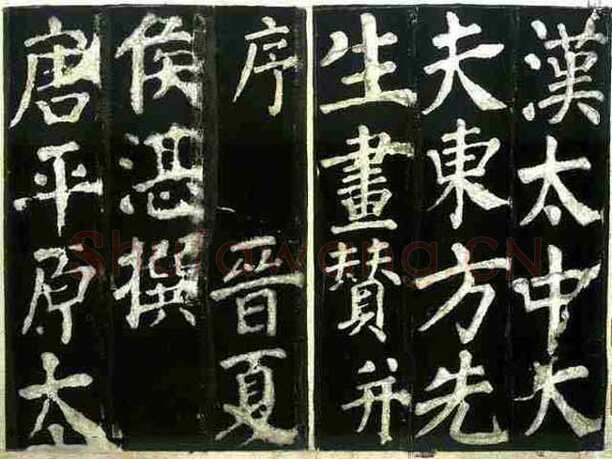 漢太中大
夫東方先
生畫贊并
序 晉夏
侯湛撰
唐平原太
Shufawang.CN